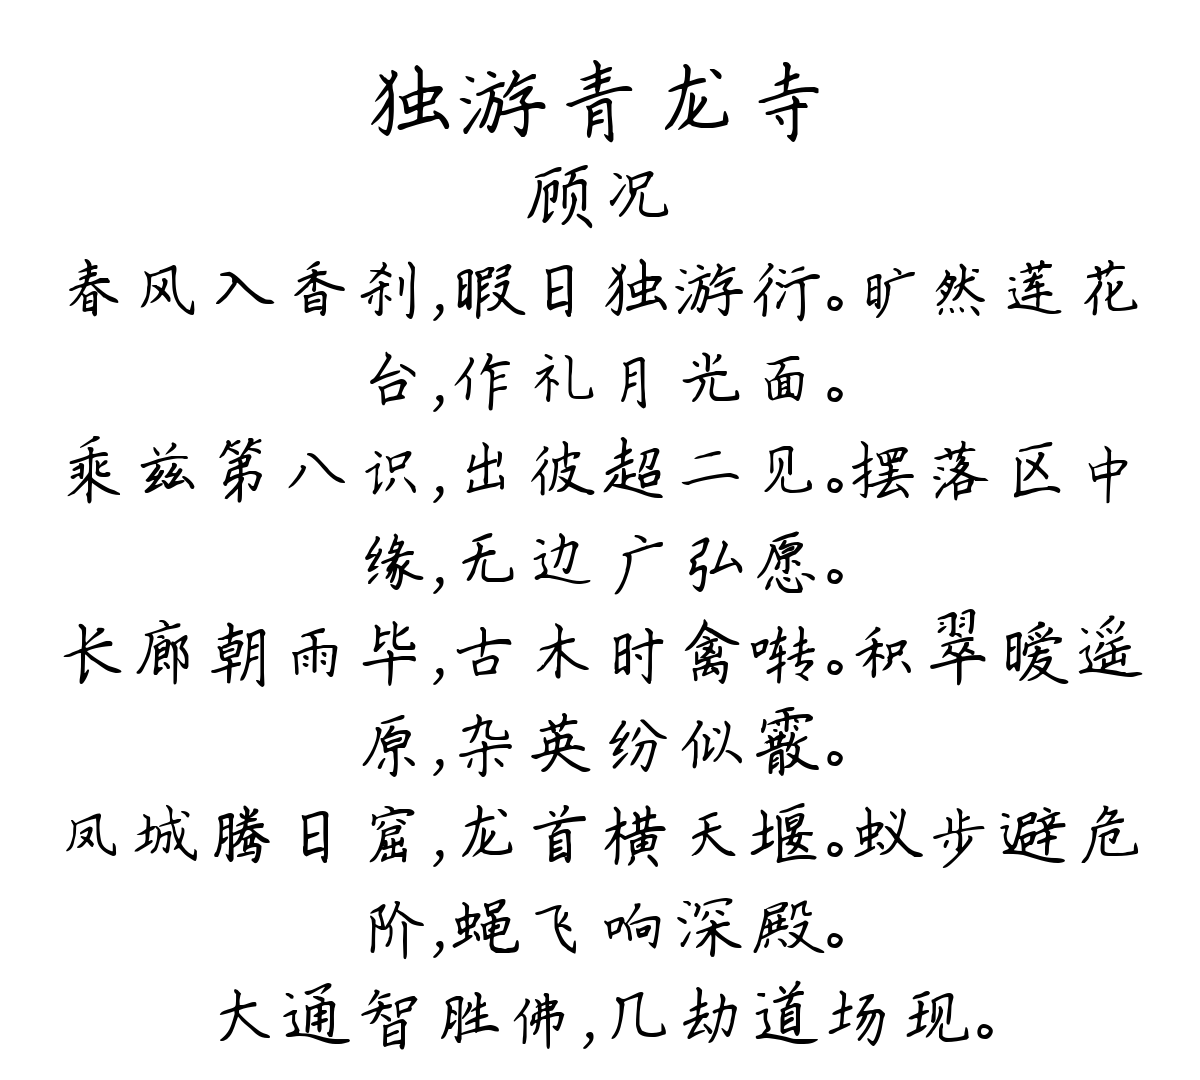 独游青龙寺
顾况
春风入香刹,暇日独游衍。旷然莲花
台,作礼月光面。
乘兹第八识,出彼超二见。摆落区中
缘,无边广弘愿。
长廊朝雨毕,古木时禽啭。积翠暧遥
原,杂英纷似霰。
凤城腾日窟,龙首横天堰。蚁步避危
阶,蝇飞响深殿。
大通智胜佛,几劫道场现。